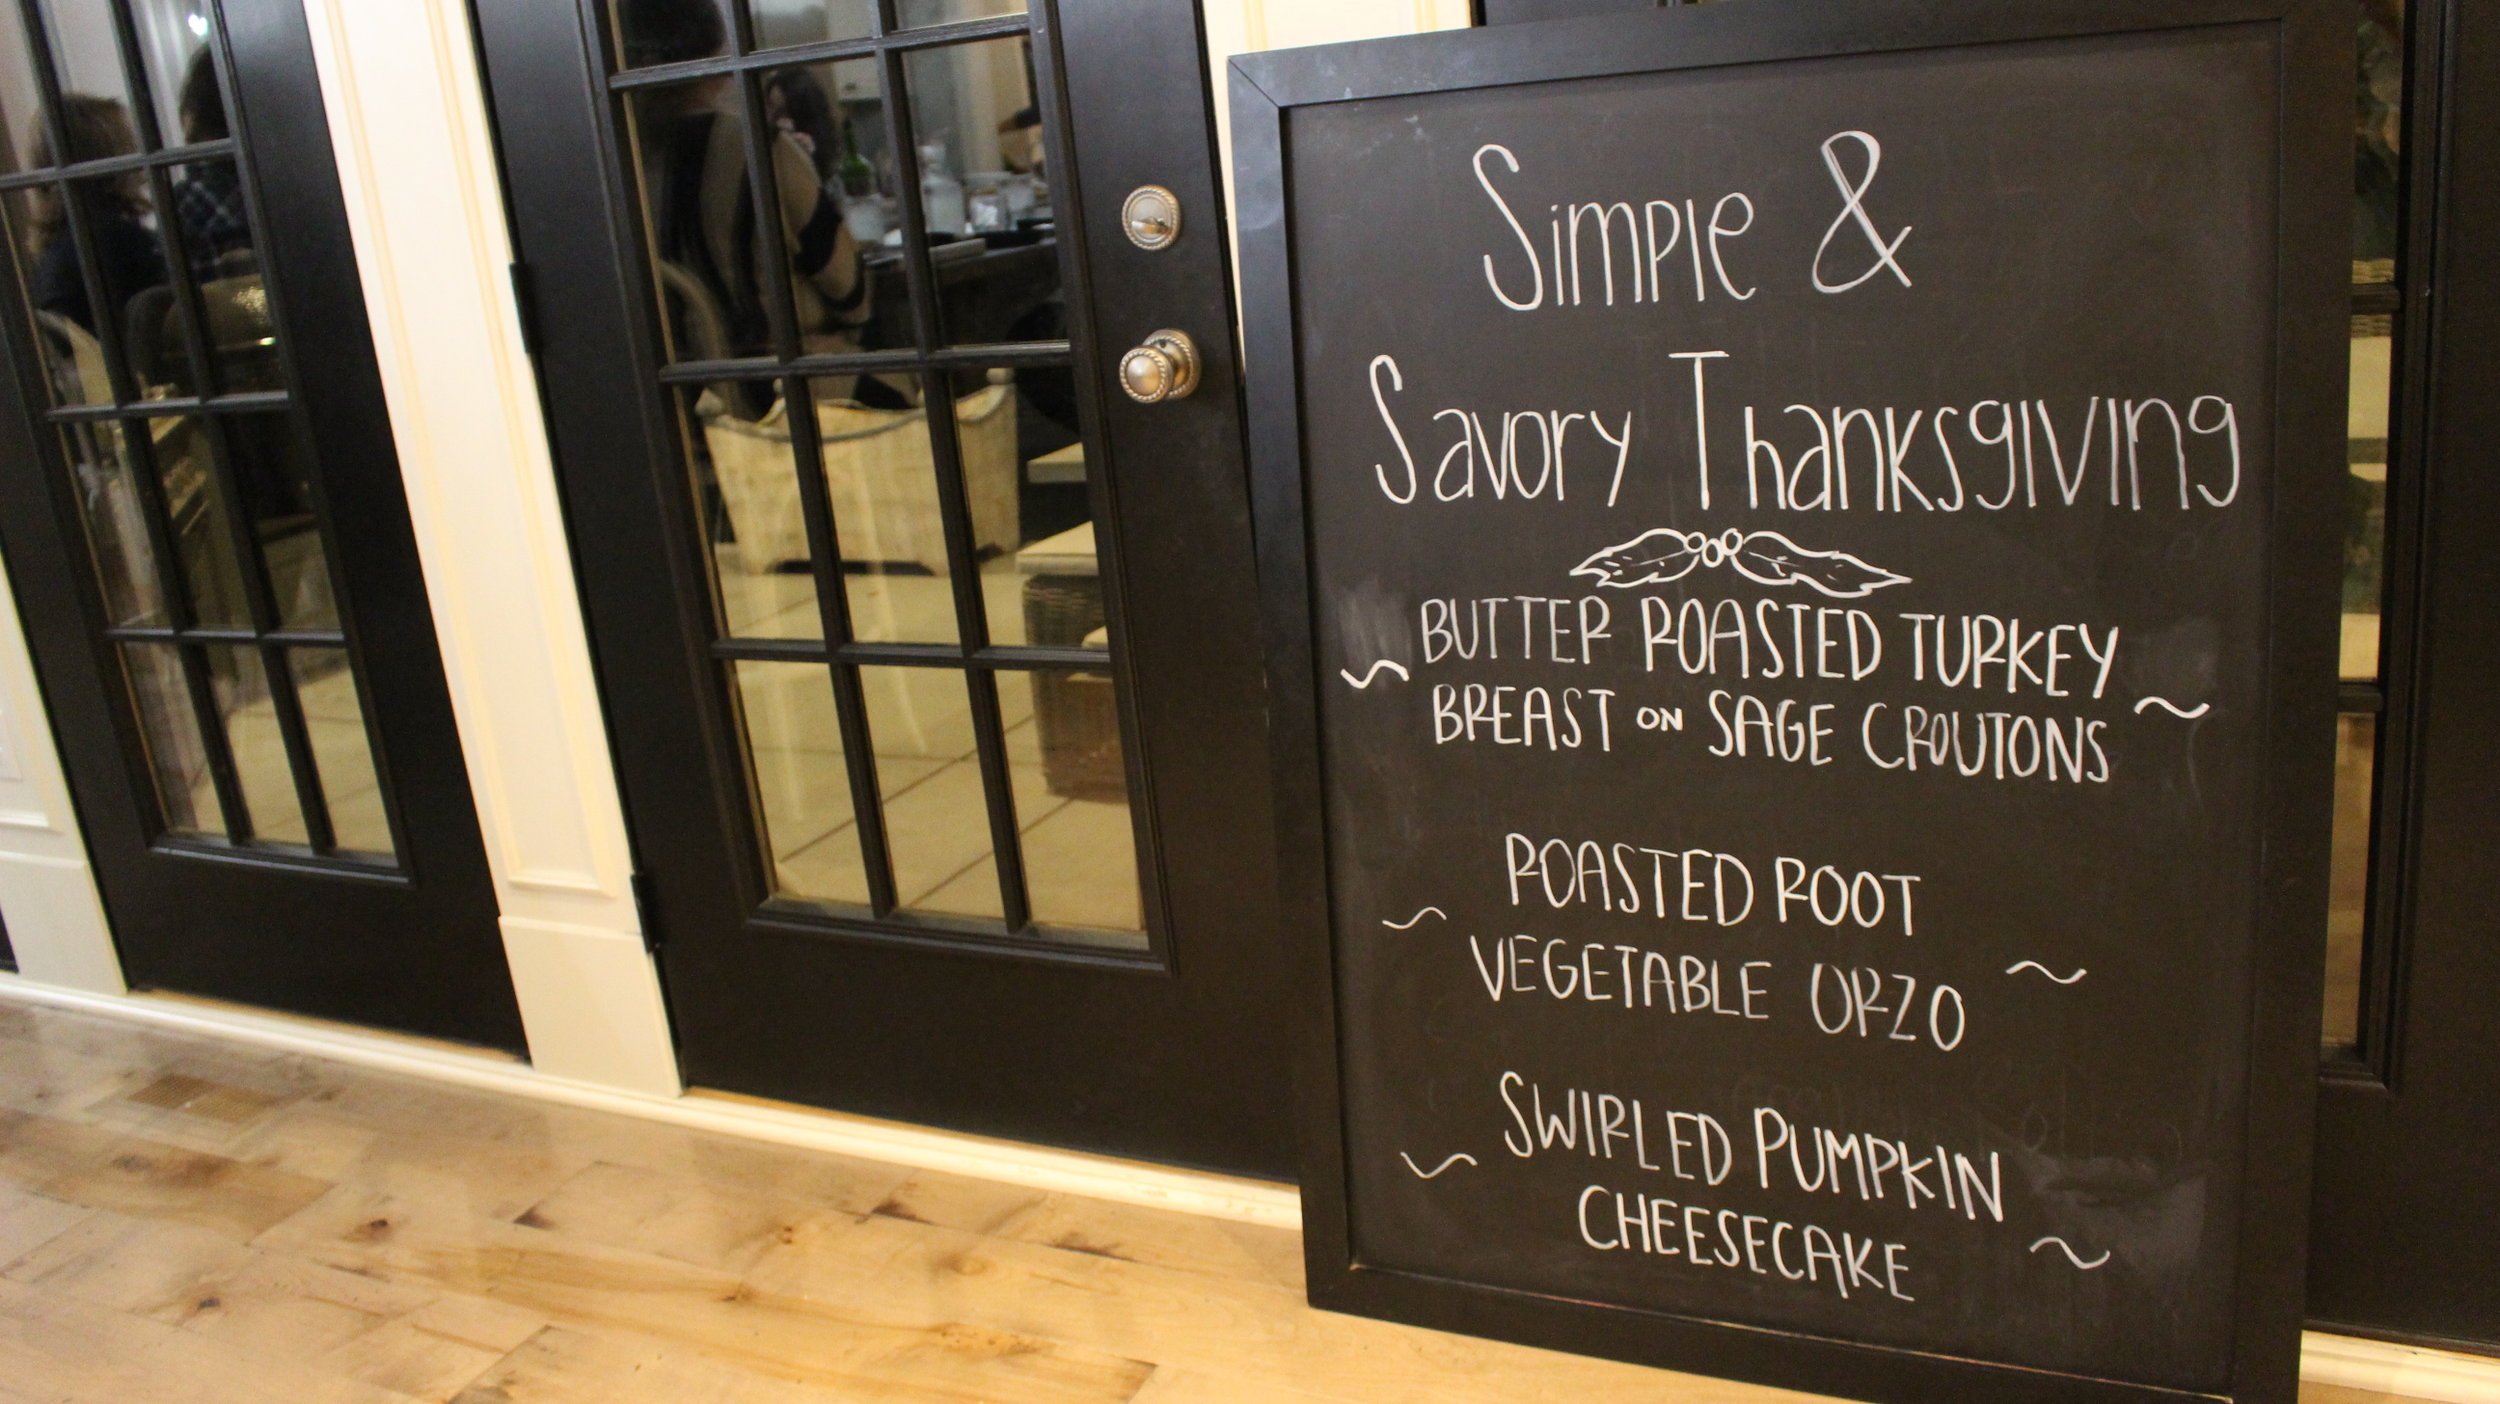 Simple &
Savory Thanksgiving
BUTTER ROASTED TURKEY
BREAST ON SAGE CROUTONS
ROASTED ROOT
VEGETABLE ORZO
SWIRLED PUMPKIN
CHEESECAKE